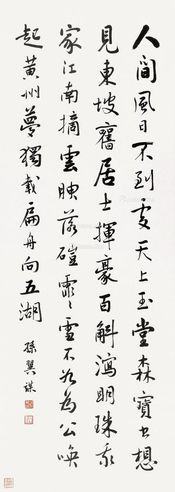 人間風日不到處天上玉堂森寶書想
見東坡舊居士揮豪百斛瀉明珠我
家江南摘雲腴落磑霏〻雪不如為公喚
起黃州夢獨載扁舟向五湖
孫翼謀